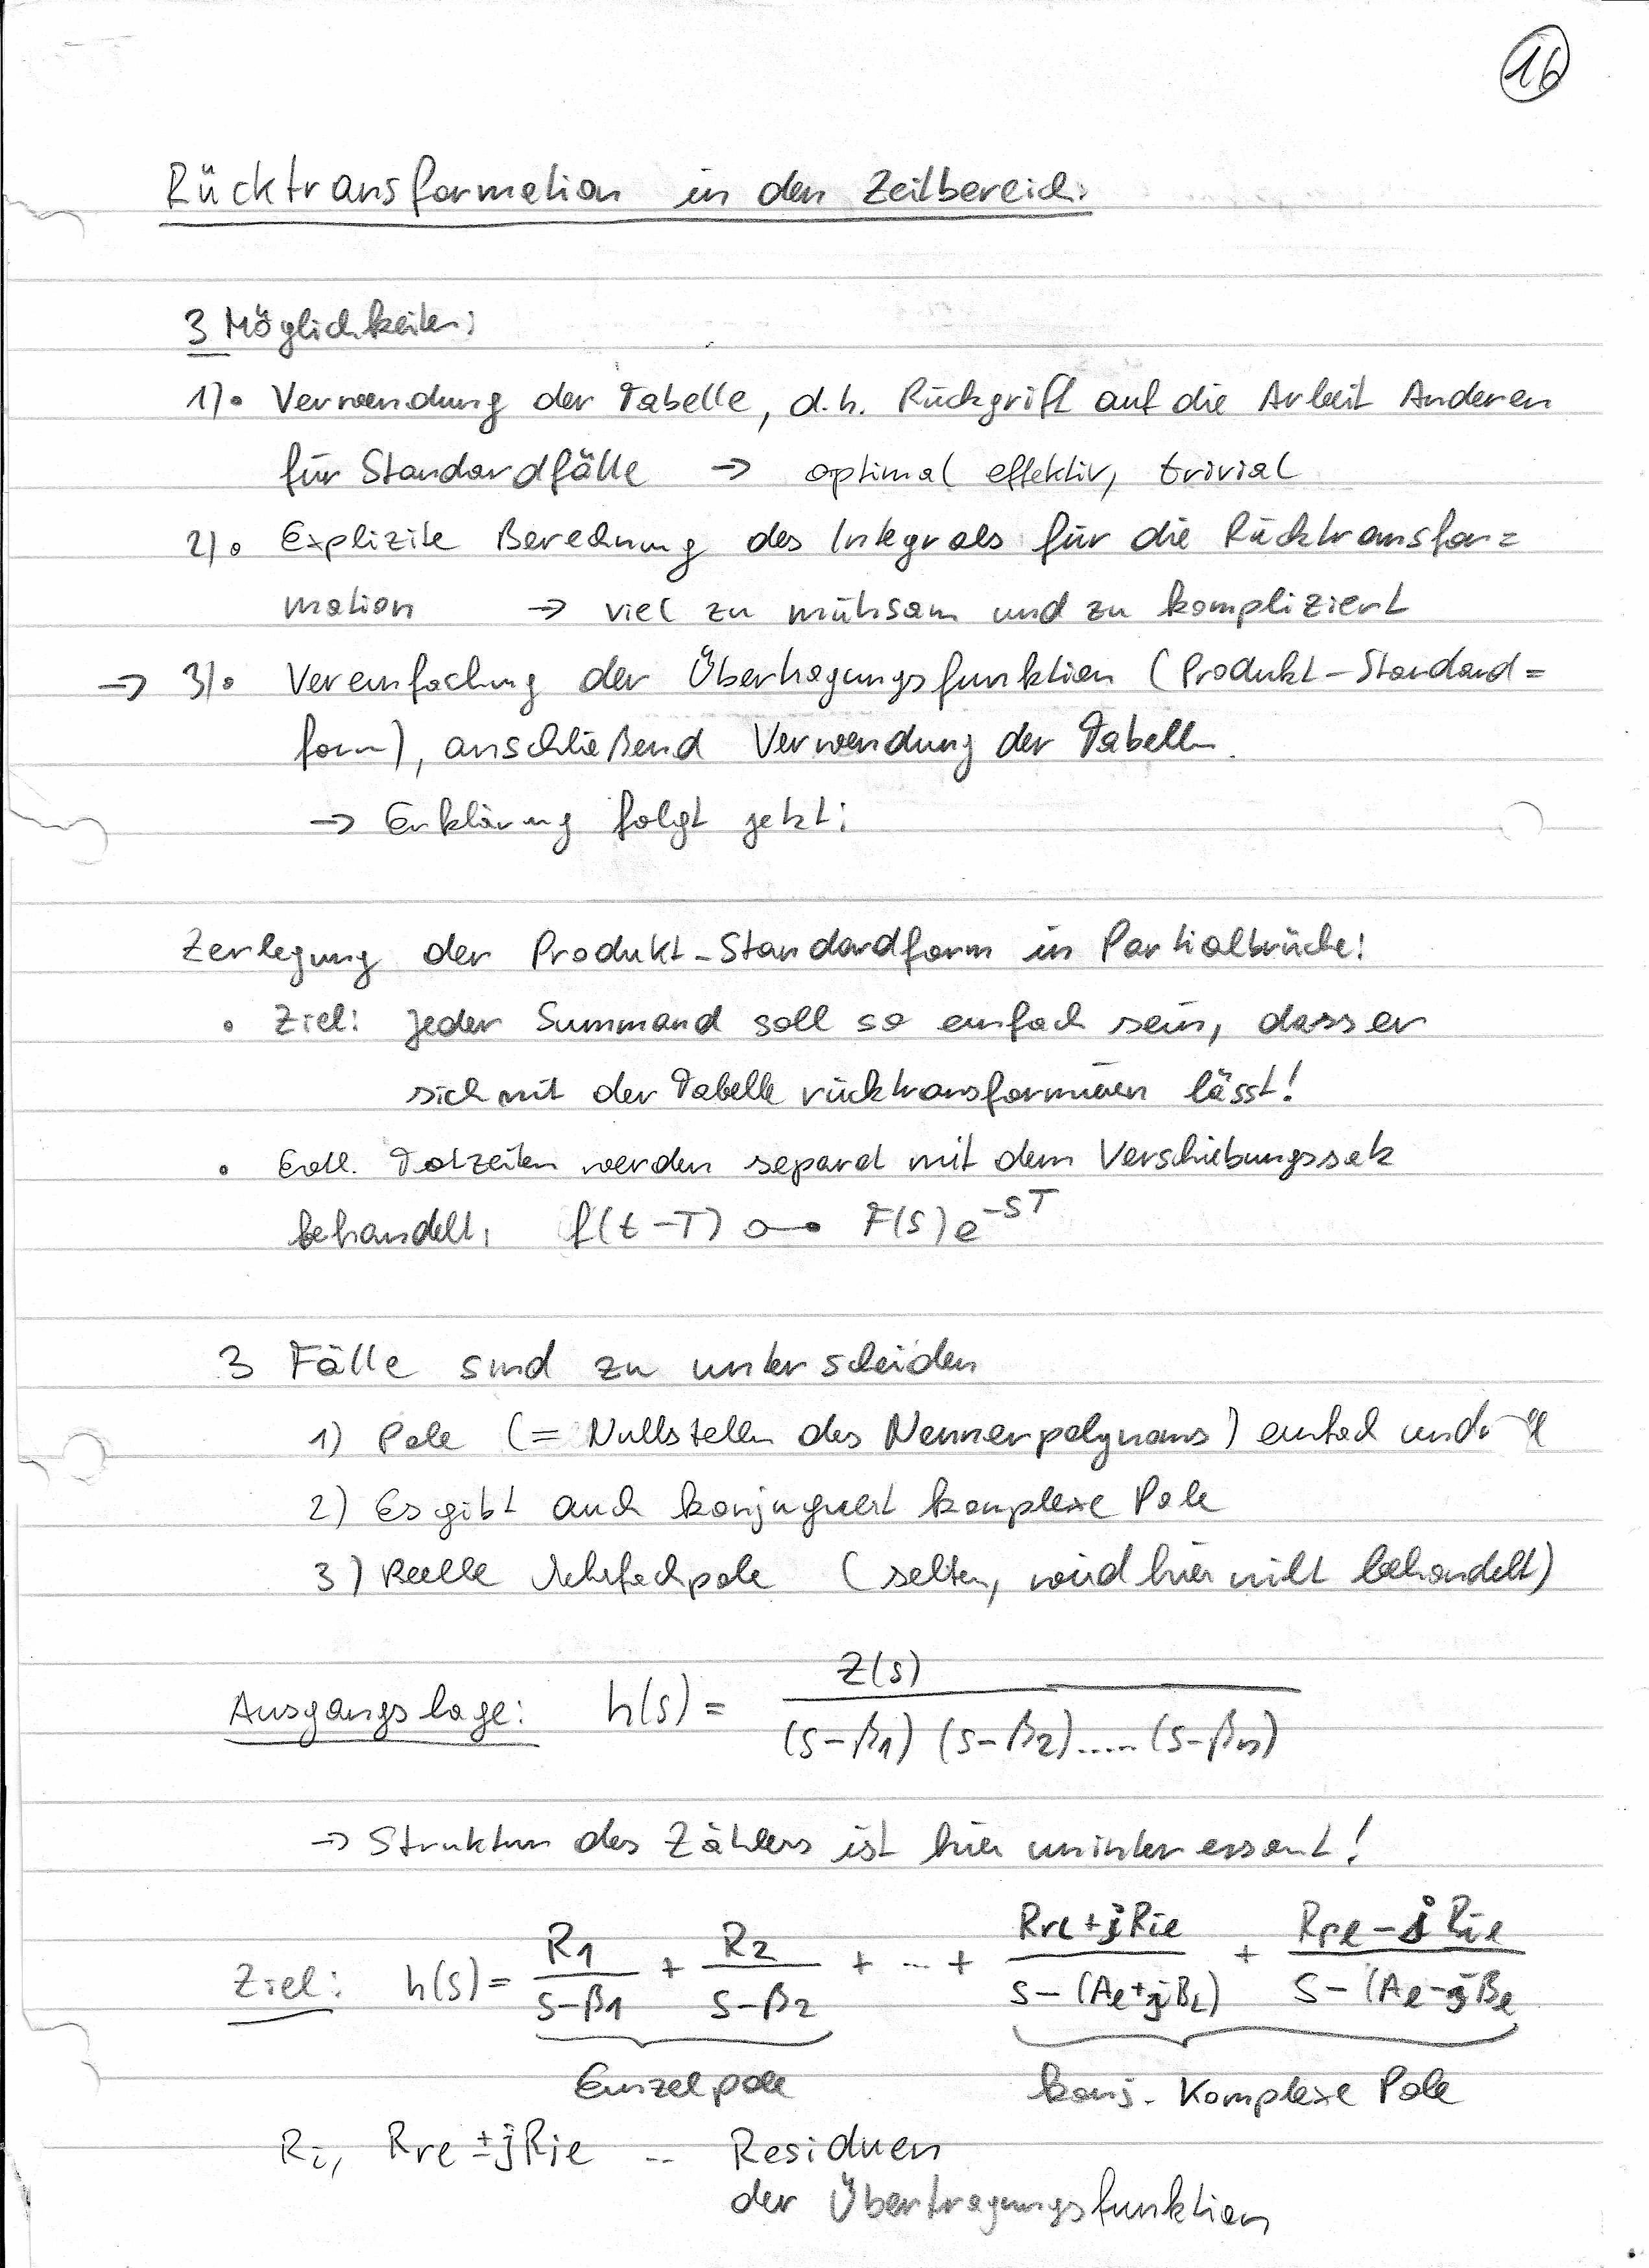 16
Rücktransformation in den Zeitbereich:
3 Möglichkeiten:
1) • Verwendung der Tabelle, d.h. Rückgriff auf die Arbeit Anderen
für Standardfälle → optimal effektiv, trivial
2) • Explizite Berechnung des Integrals für die Rücktransfor=
mation → viel zu mühsam und zu kompliziert
→ 3) • Vereinfachung der Übertragungsfunktion (Produkt-Standard=
form), anschließend Verwendung der Tabelle.
→ Erklärung folgt jetzt:
Zerlegung der Produkt-Standardform in Partialbrüche:
• Ziel: jeder Summand soll so einfach sein, dass er
sich mit der Tabelle rücktransformieren lässt!
• Evtl. Totzeiten werden separat mit dem Verschiebungssatz
behandelt: f(t-T) ○—● F(s)e^-sT
3 Fälle sind zu unterscheiden
1) Pole (= Nullstellen des Nennerpolynoms) einfach und
2) Es gibt auch konjugiert komplexe Pole
3) Reelle Mehrfachpole (selten, wird hier nicht behandelt)
Ausgangslage: h(s) = Z(s) / (s-β1) (s-β2).....(s-βn)
→ Struktur des Zählers ist hier uninteressant!
Ziel: h(s) = R1 / s-β1 + R2 / s-β2 + ... + Rre+jRie / s-(Ae+jBe) + Rre-jRie / s-(Ae-jBe
Einzelpole konj. Komplexe Pole
Ri, Rre ± jRie .. Residuen
der Übertragungsfunktion